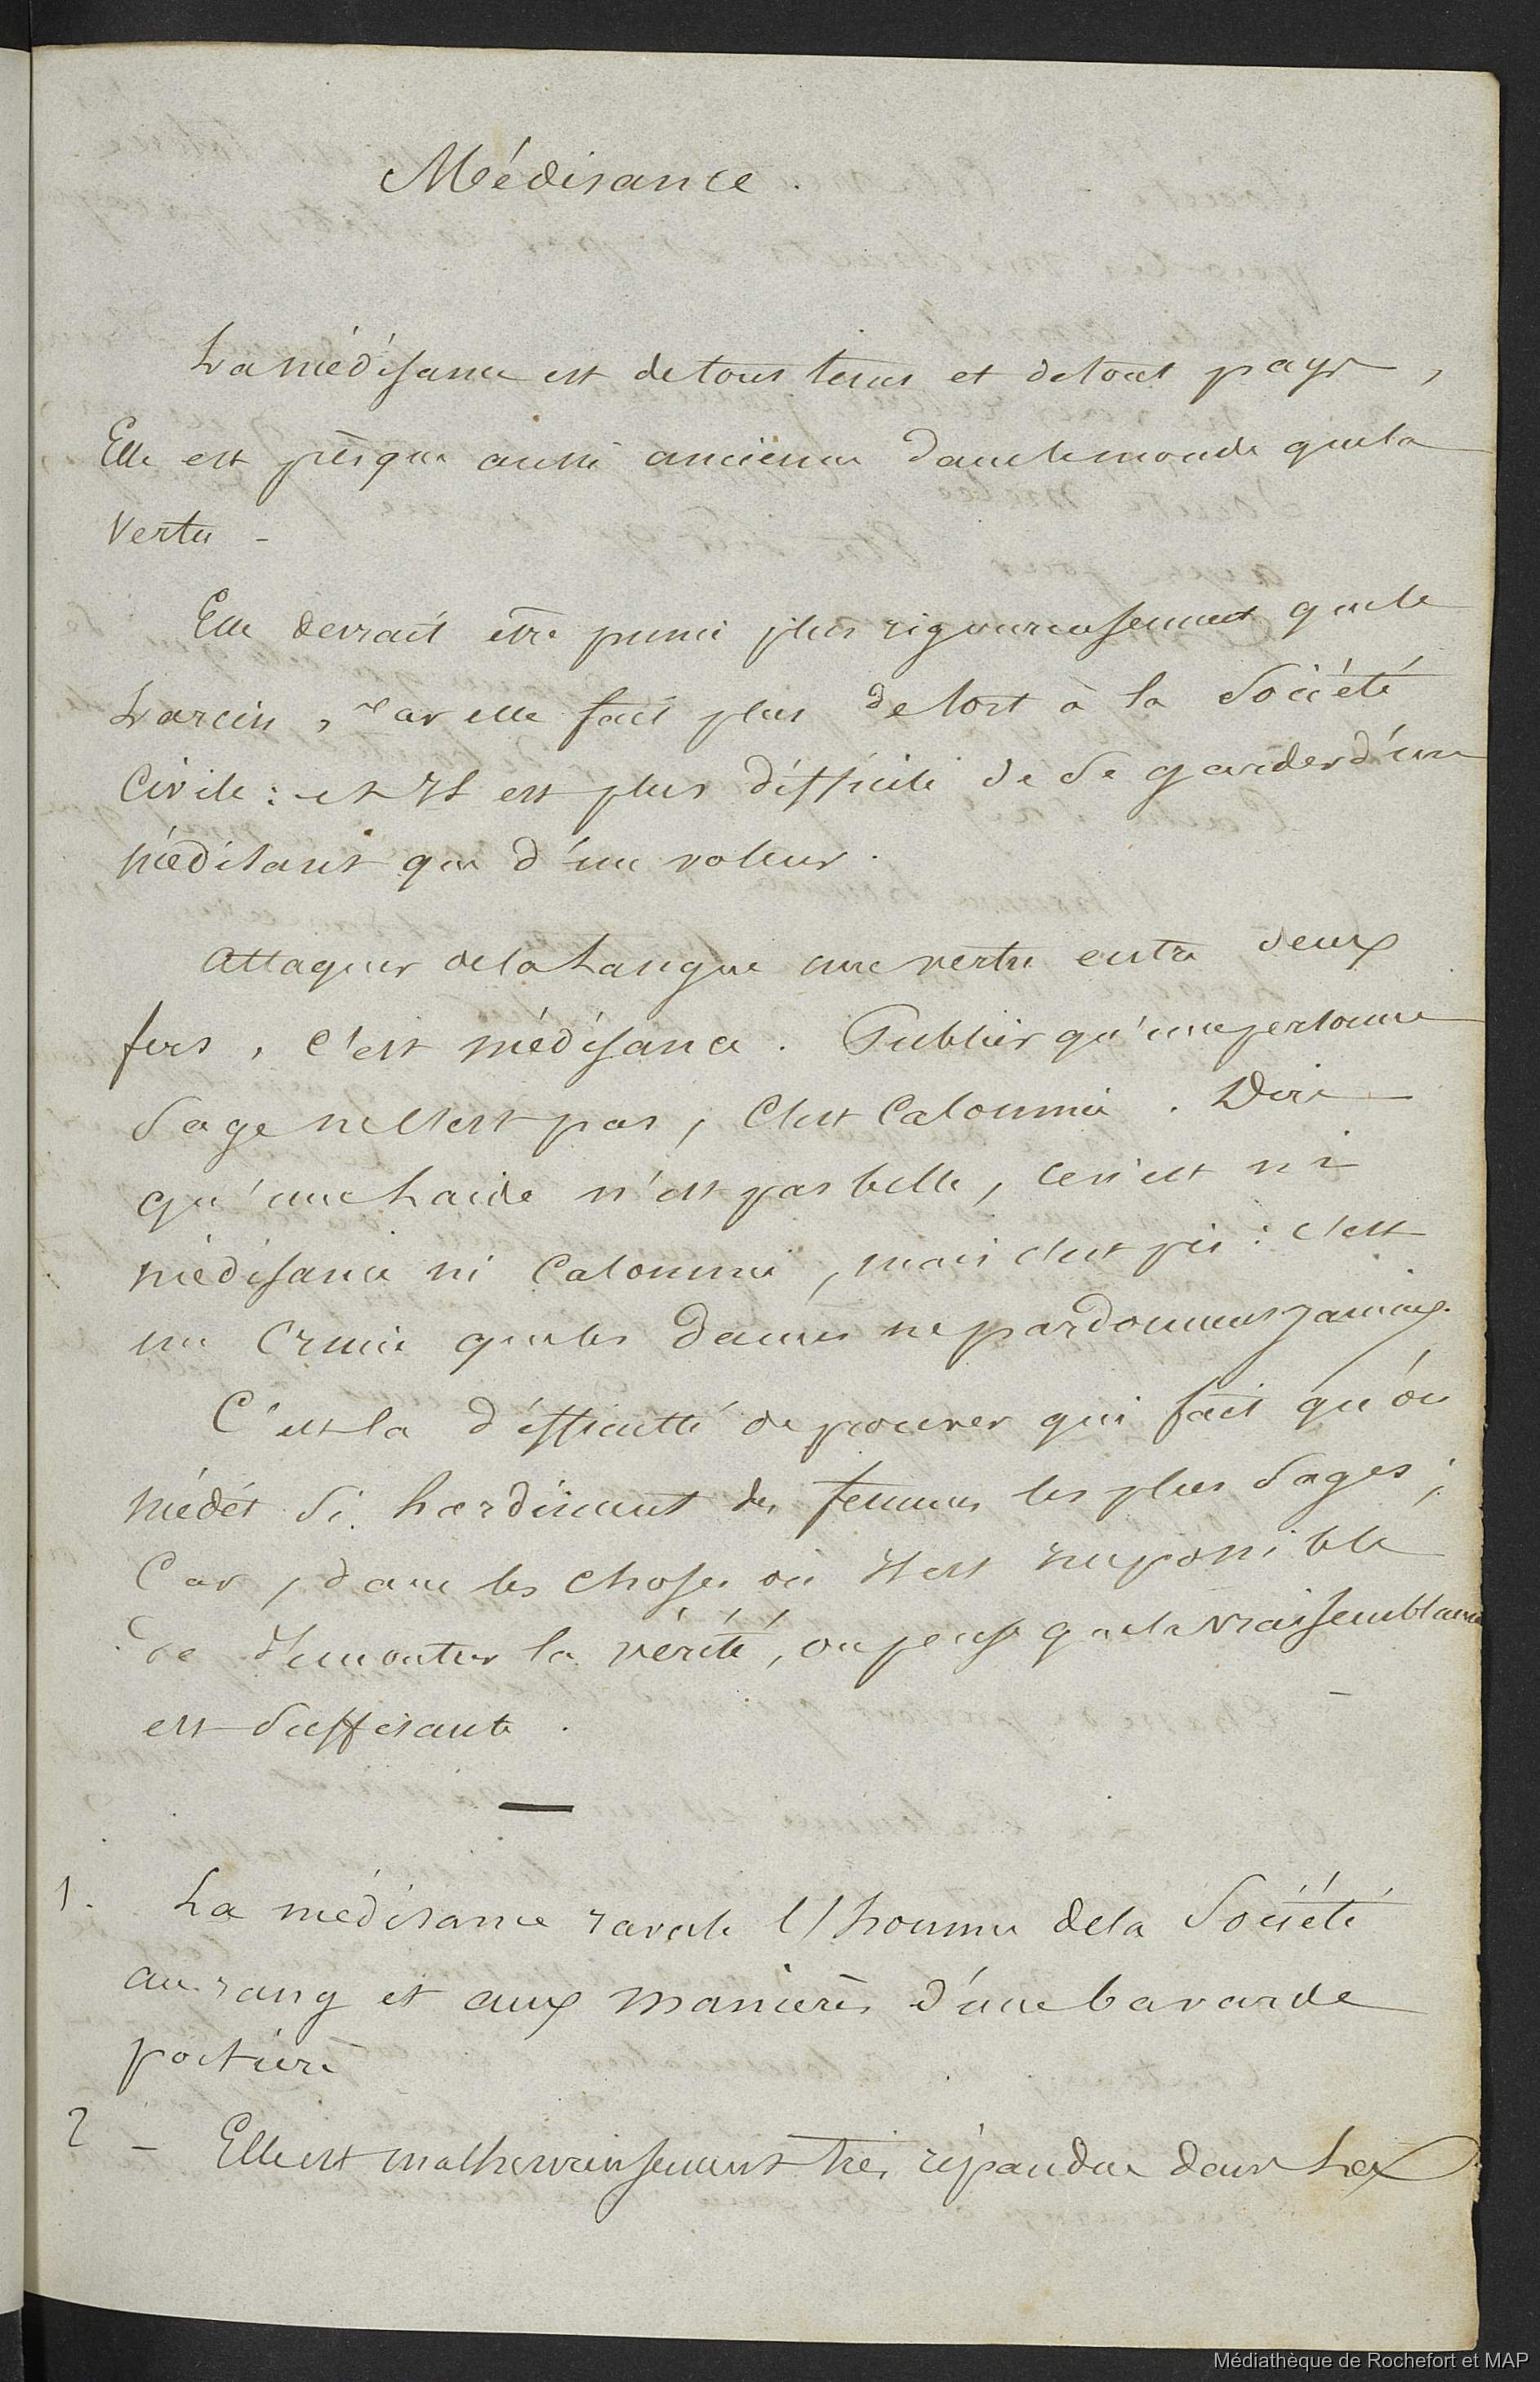 Médisance.
La médisance est de tous tems et de tout pays,
Elle est présque aussi ancienne dans le monde que la
Vertu -
Elle devrait être punie plus rigoureusement que le
Larcin, car elle fait plus de tort à la Société
Civile : et Il est plus difficile de se garder d'un
médisant que d'un voleur.
Attaquer de la Langue une vertu entre deux
fers, c'est médisance. Publier qu'une personne
sage ne l'est pas, c'est Calomnie. Dire
qu'une Laide n'est pas belle, ce n'est ni
médisance ni Calomnie, mais c'est pis : c'est
un Crime que les Dames ne pardonnent jamais.
C'est la difficulté de prouver qui fait qu'on
médit si hardiment des femmes les plus sages ;
Car, dans les choses où Il est impossible
de démontrer la vérité, on pense que la vraisemblance
est suffisante.
1. La médisance ravale l'homme de la Société
au rang et aux manières d'une bavarde
portière
2 - Elle est malheureusement très répandue dans Les
Médiathèque de Rochefort et MAP